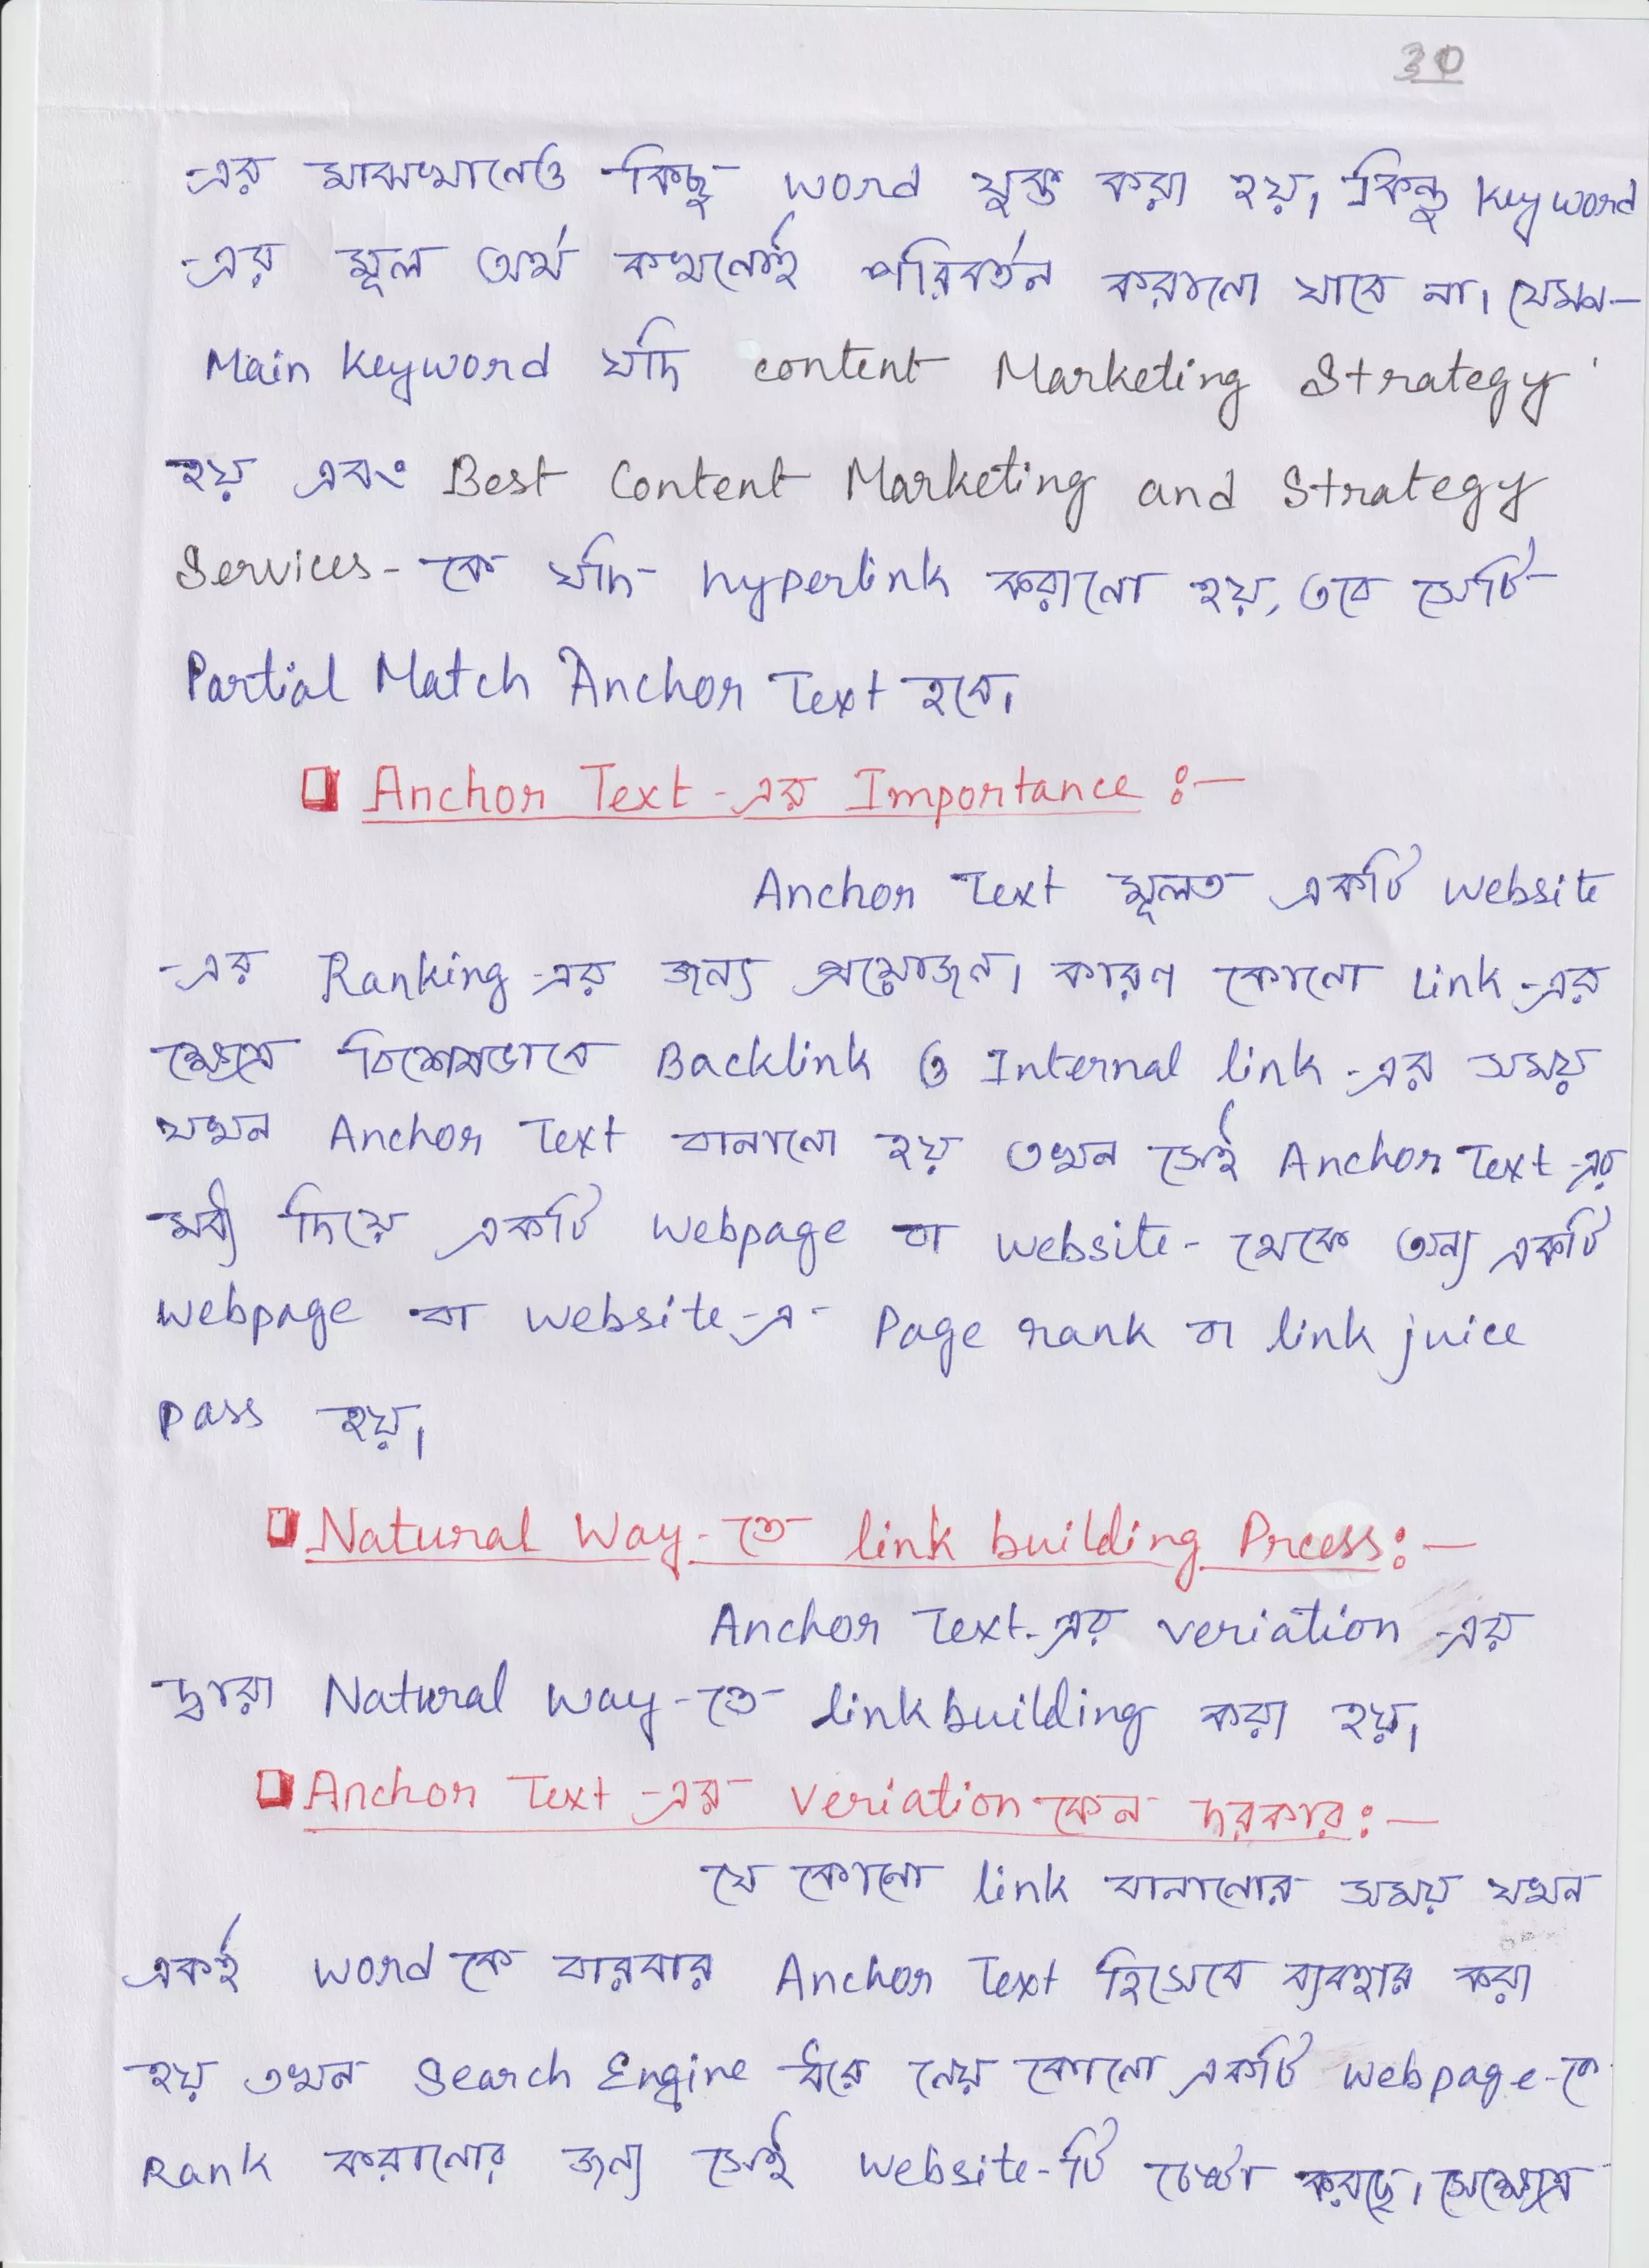 30
-এর মাঝখানেও কিছু word যুক্ত করা হয়, কিন্তু keyword
-এর মূল অর্থ কখনোই পরিবর্তন করানো যাবে না। যেমন-
Main keyword যদি content Marketing Strategy
হয় এবং Best Content Marketing and Strategy
Services- কে যদি hyperlink করানো হয়, তবে সেটি
Partial Match Anchor Text হবে।
Anchor Text -এর Importance :-
Anchor Text মূলত একটি website
-এর Ranking -এর জন্য প্রয়োজন। কারণ কোনো link -এর
ক্ষেত্রে বিশেষভাবে Backlink ও Internal link -এর সময়
যখন Anchor Text বানানো হয় তখন সেই Anchor Text -এর
মধ্য দিয়ে একটি webpage বা website- থেকে অন্য একটি
webpage বা website -এ Page rank বা link juice
pass হয়।
Natural Way- তে link building Prcess :-
Anchor Text -এর veriation -এর
দ্বারা Natural way- তে link building করা হয়।
Anchor Text -এর veriation কেন দরকার :-
যে কোনো link বানানোর সময় যখন
একই word কে বারবার Anchor Text হিসেবে ব্যবহার করা
হয় তখন Search Engine ধরে নেয় কোনো একটি webpage-কে
Rank করানোর জন্য সেই website-টি চেষ্টা করছে। সেক্ষেত্রে